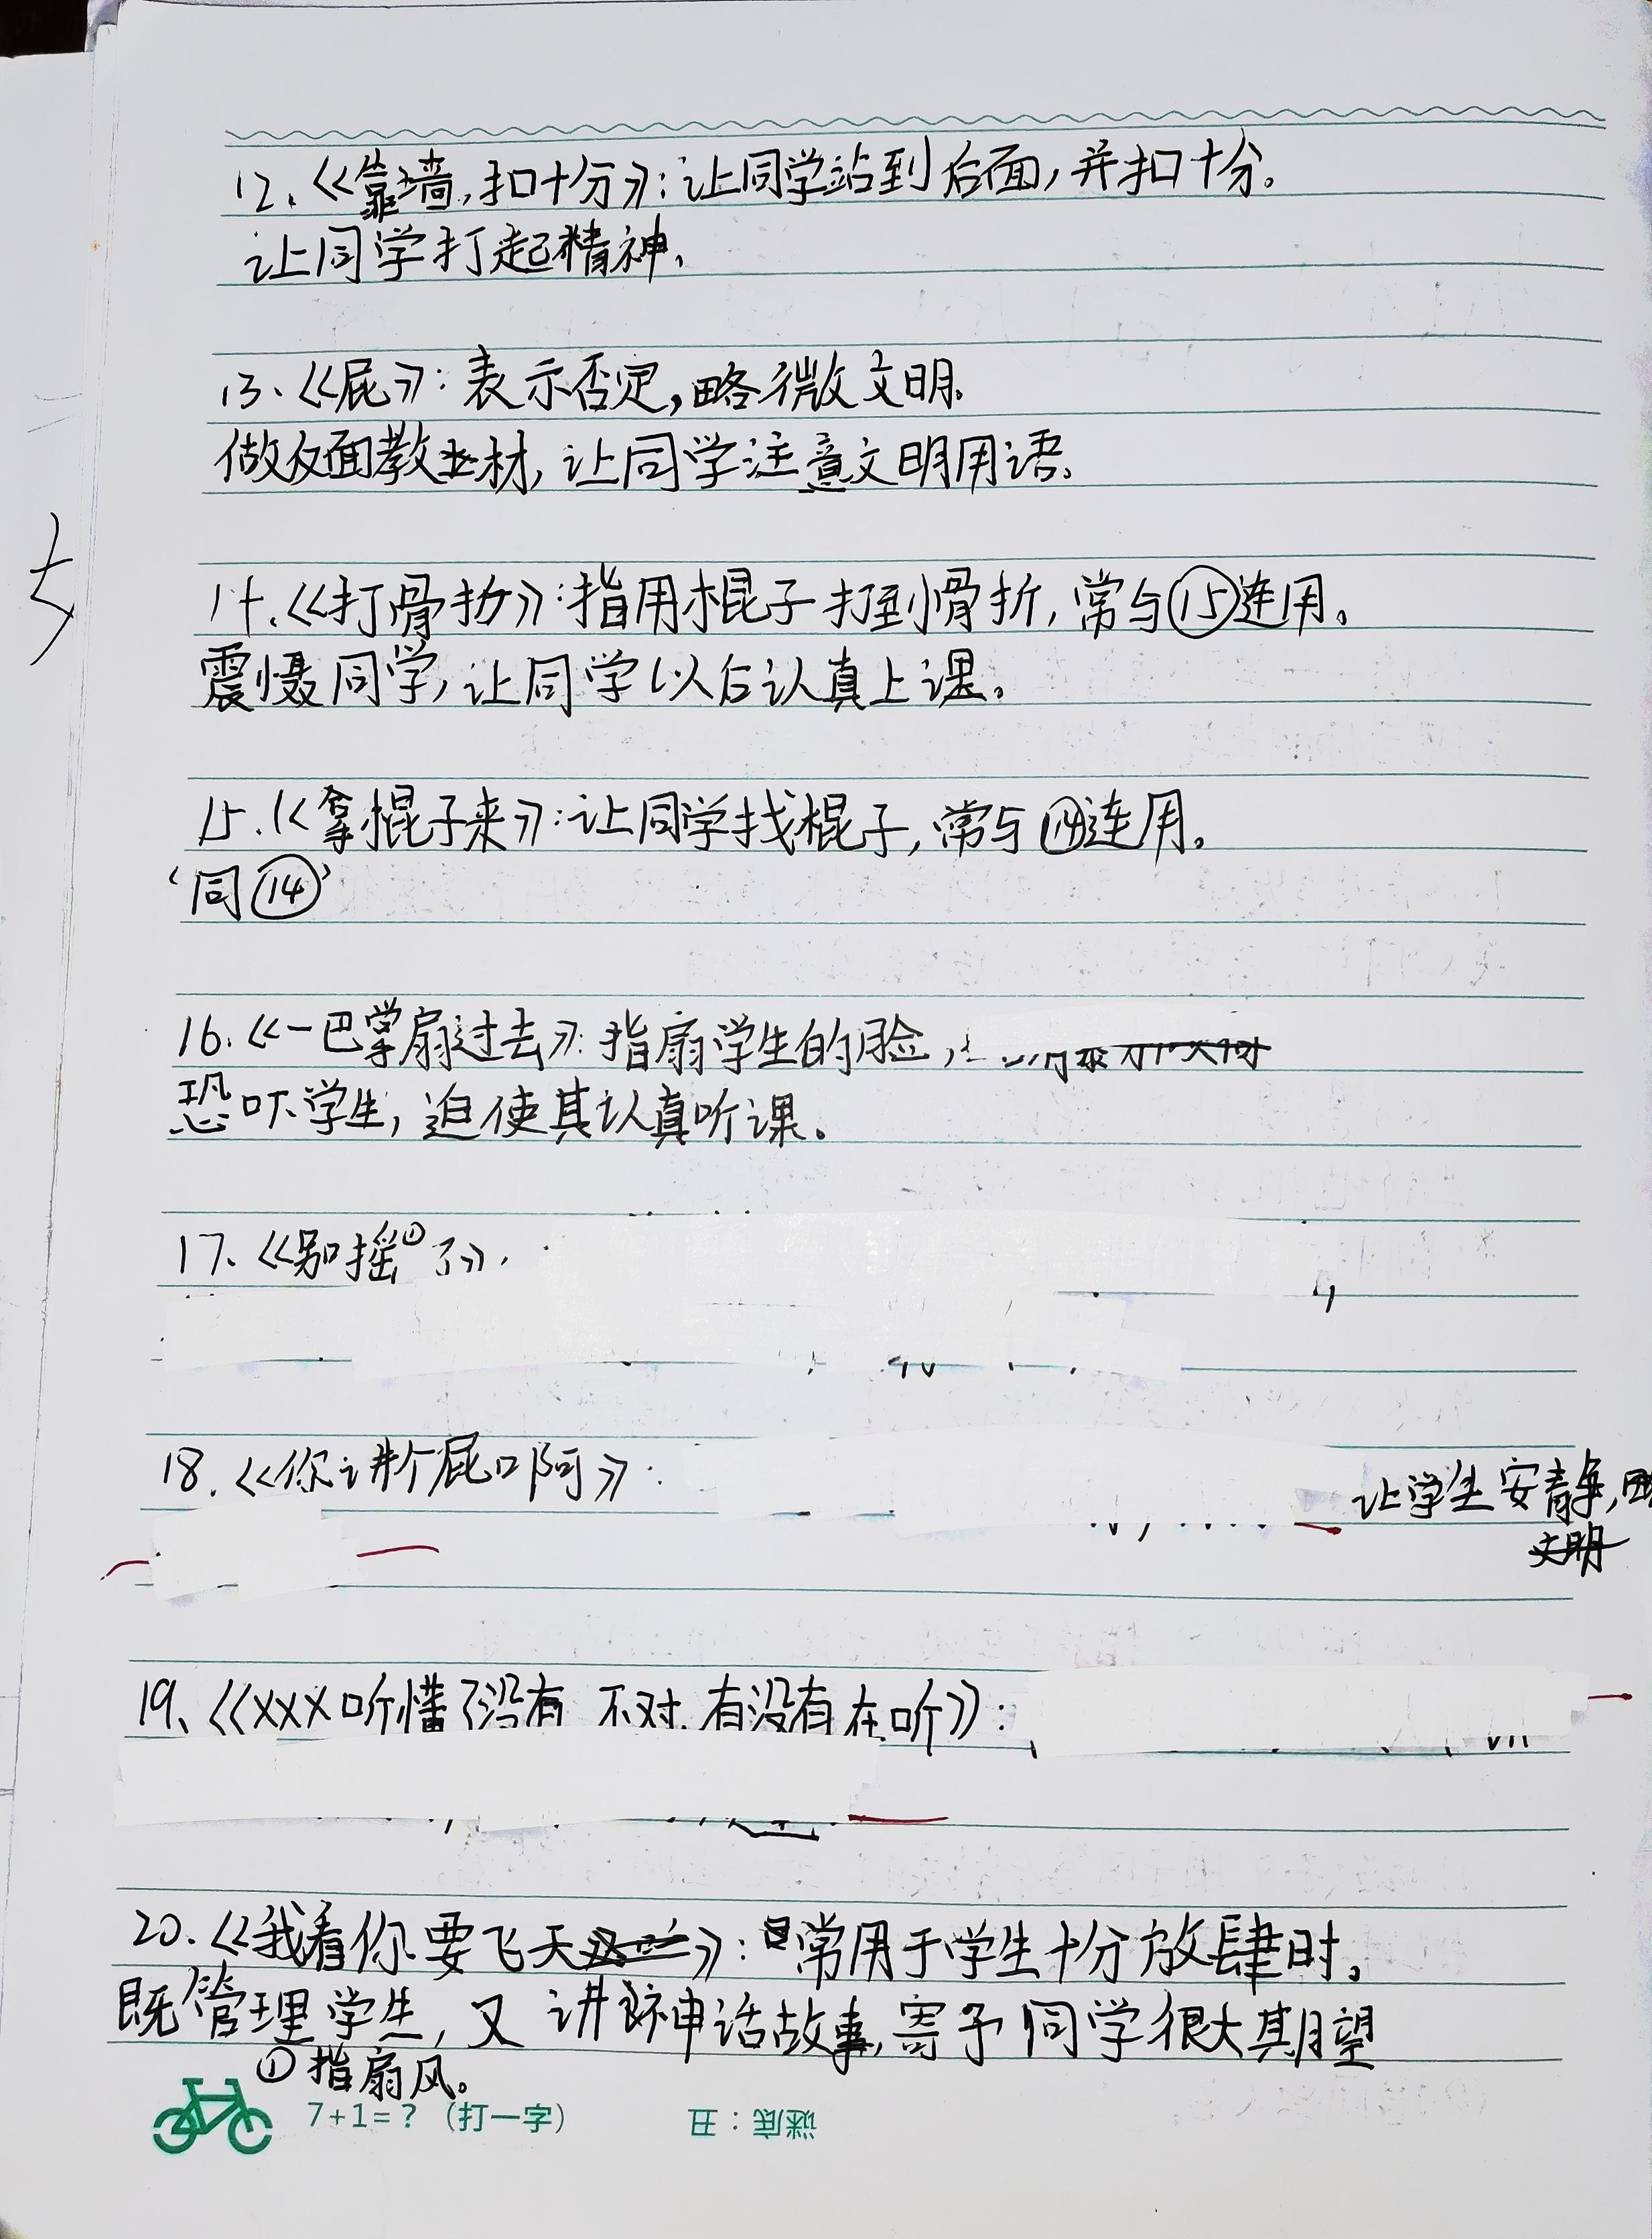 12、《靠墙,扣十分》:让同学站到后面,并扣十分。
让同学打起精神。
13、《屁》:表示否定,略微文明。
做反面教材,让同学注意文明用语。
14.《打骨折》:指用棍子打到骨折,常与⑮连用。
震慑同学,让同学以后认真上课。
15.《拿棍子来》:让同学找棍子,常与⑭连用。
‘同⑭’
16.《一巴掌扇过去》:指扇学生的脸,
恐吓学生,迫使其认真听课。
17、《别摇①了》
18.《你讲个屁啊》:
让学生安静,
文明
19、《XXX听懂了没有 不对.有没有在听》:
20.《我看你要飞天》:常用于学生十分放肆时。
既管理学生,又讲神话故事,寄予同学很大期望
①指扇风。
7+1=?(打一字)
谜底:旦